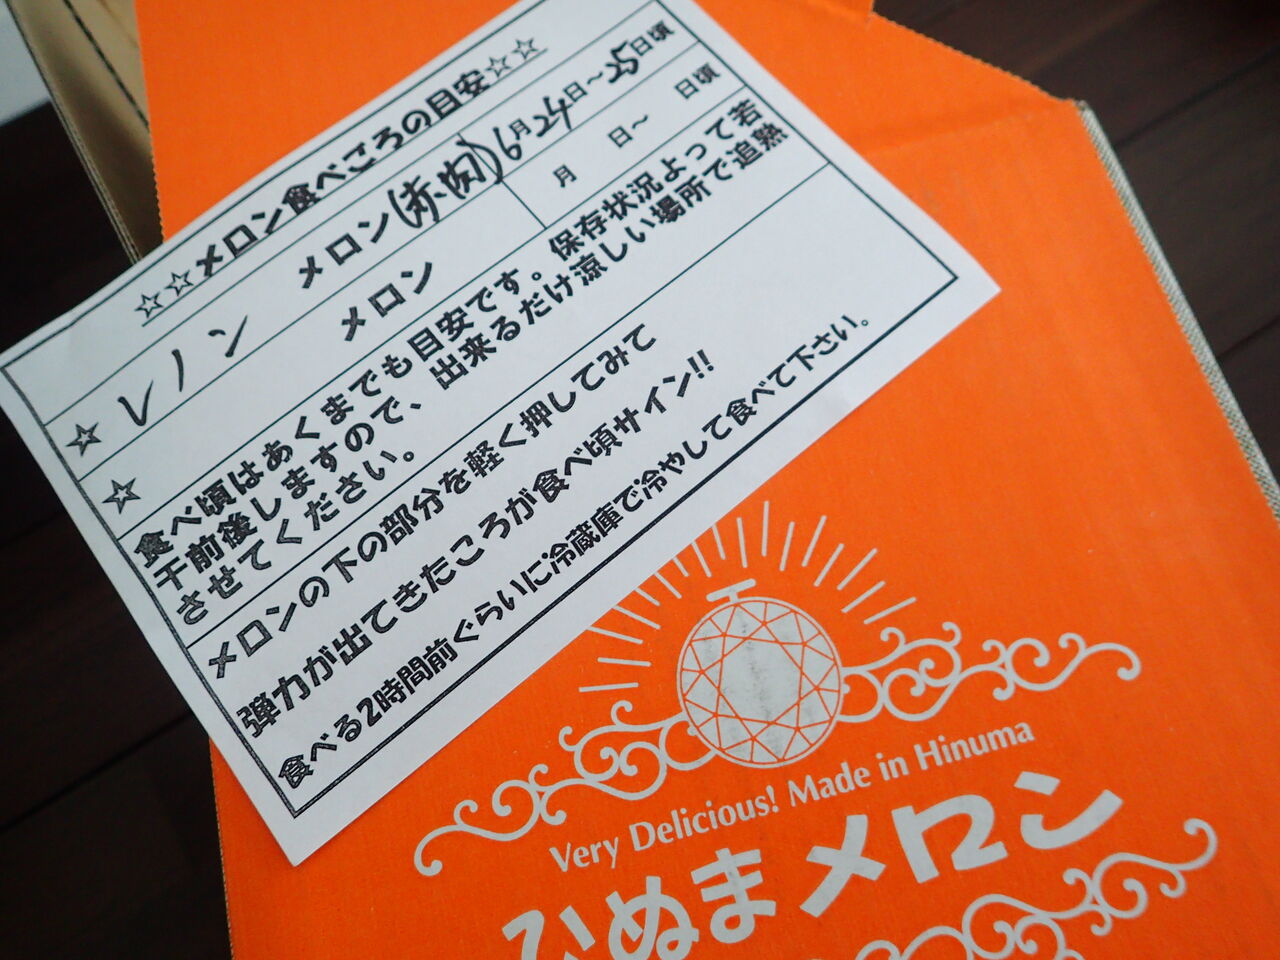 ☆☆メロン食べごろの目安☆☆
☆ レノン メロン(赤肉) 6月24日～25日頃
☆ メロン 月 日～ 日頃
食べ頃はあくまでも目安です。保存状況よって若
干前後しますので、出来るだけ涼しい場所で追熟
させてください。
メロンの下の部分を軽く押してみて
弾力が出てきたころが食べ頃サイン!!
食べる2時間前ぐらいに冷蔵庫で冷やして食べて下さい。
Very Delicious! Made in Hinuma
ひぬまメロン